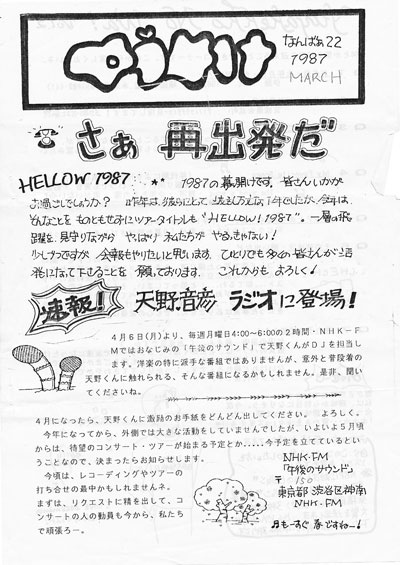 なんばぁ22
1987
MARCH
さぁ 再出発だ
HELLOW 1987・・・ 1987の幕開けです。皆さんいかが
お過ごしでしょうか? 昨年は、
そんなことを ものともせずにツアータイトルも"HELLOW! 1987"。一層の飛
躍を、見守りながら やっぱり 私たちが やるっきゃない!
少しずつですが 会報もやりたいと思います。ひとりでも多くの皆さんが
発になって下さることを 願っております。 これからも よろしく!
速報! 天野音彦 ラジオに登場!
4月6日(月)より、毎週月曜日4:00〜6:00の2時間・NHK-F
Mではおなじみの「午後のサウンド」で天野くんがDJを担当し
ます。洋楽の特に派手な番組ではありませんが、意外と普段着の
天野くんに触れられる、そんな番組になるかもしれません。是非、聞い
てくださいね。
4月になったら、天野くんに激励のお手紙をどんどん出してください。 よろしく。
今年になってから、外側では大きな活動をしていませんでしたが、いよいよ5月頃
からは、待望のコンサート・ツアーが始まる予定とか.....今予定を立てているとい
うことなので、決まったらお知らせします。
今頃は、レコーディングやツアーの
打ち合せの最中かもしれませんネ。
まずは、リクエストに精を出して、コ
ンサートの人の動員も今から、私たち
で頑張ろー。
NHK-FM
「午後のサウンド」
〒150
東京都 渋谷区神南
NHK・FM
♬も〜すぐ 春ですねー!